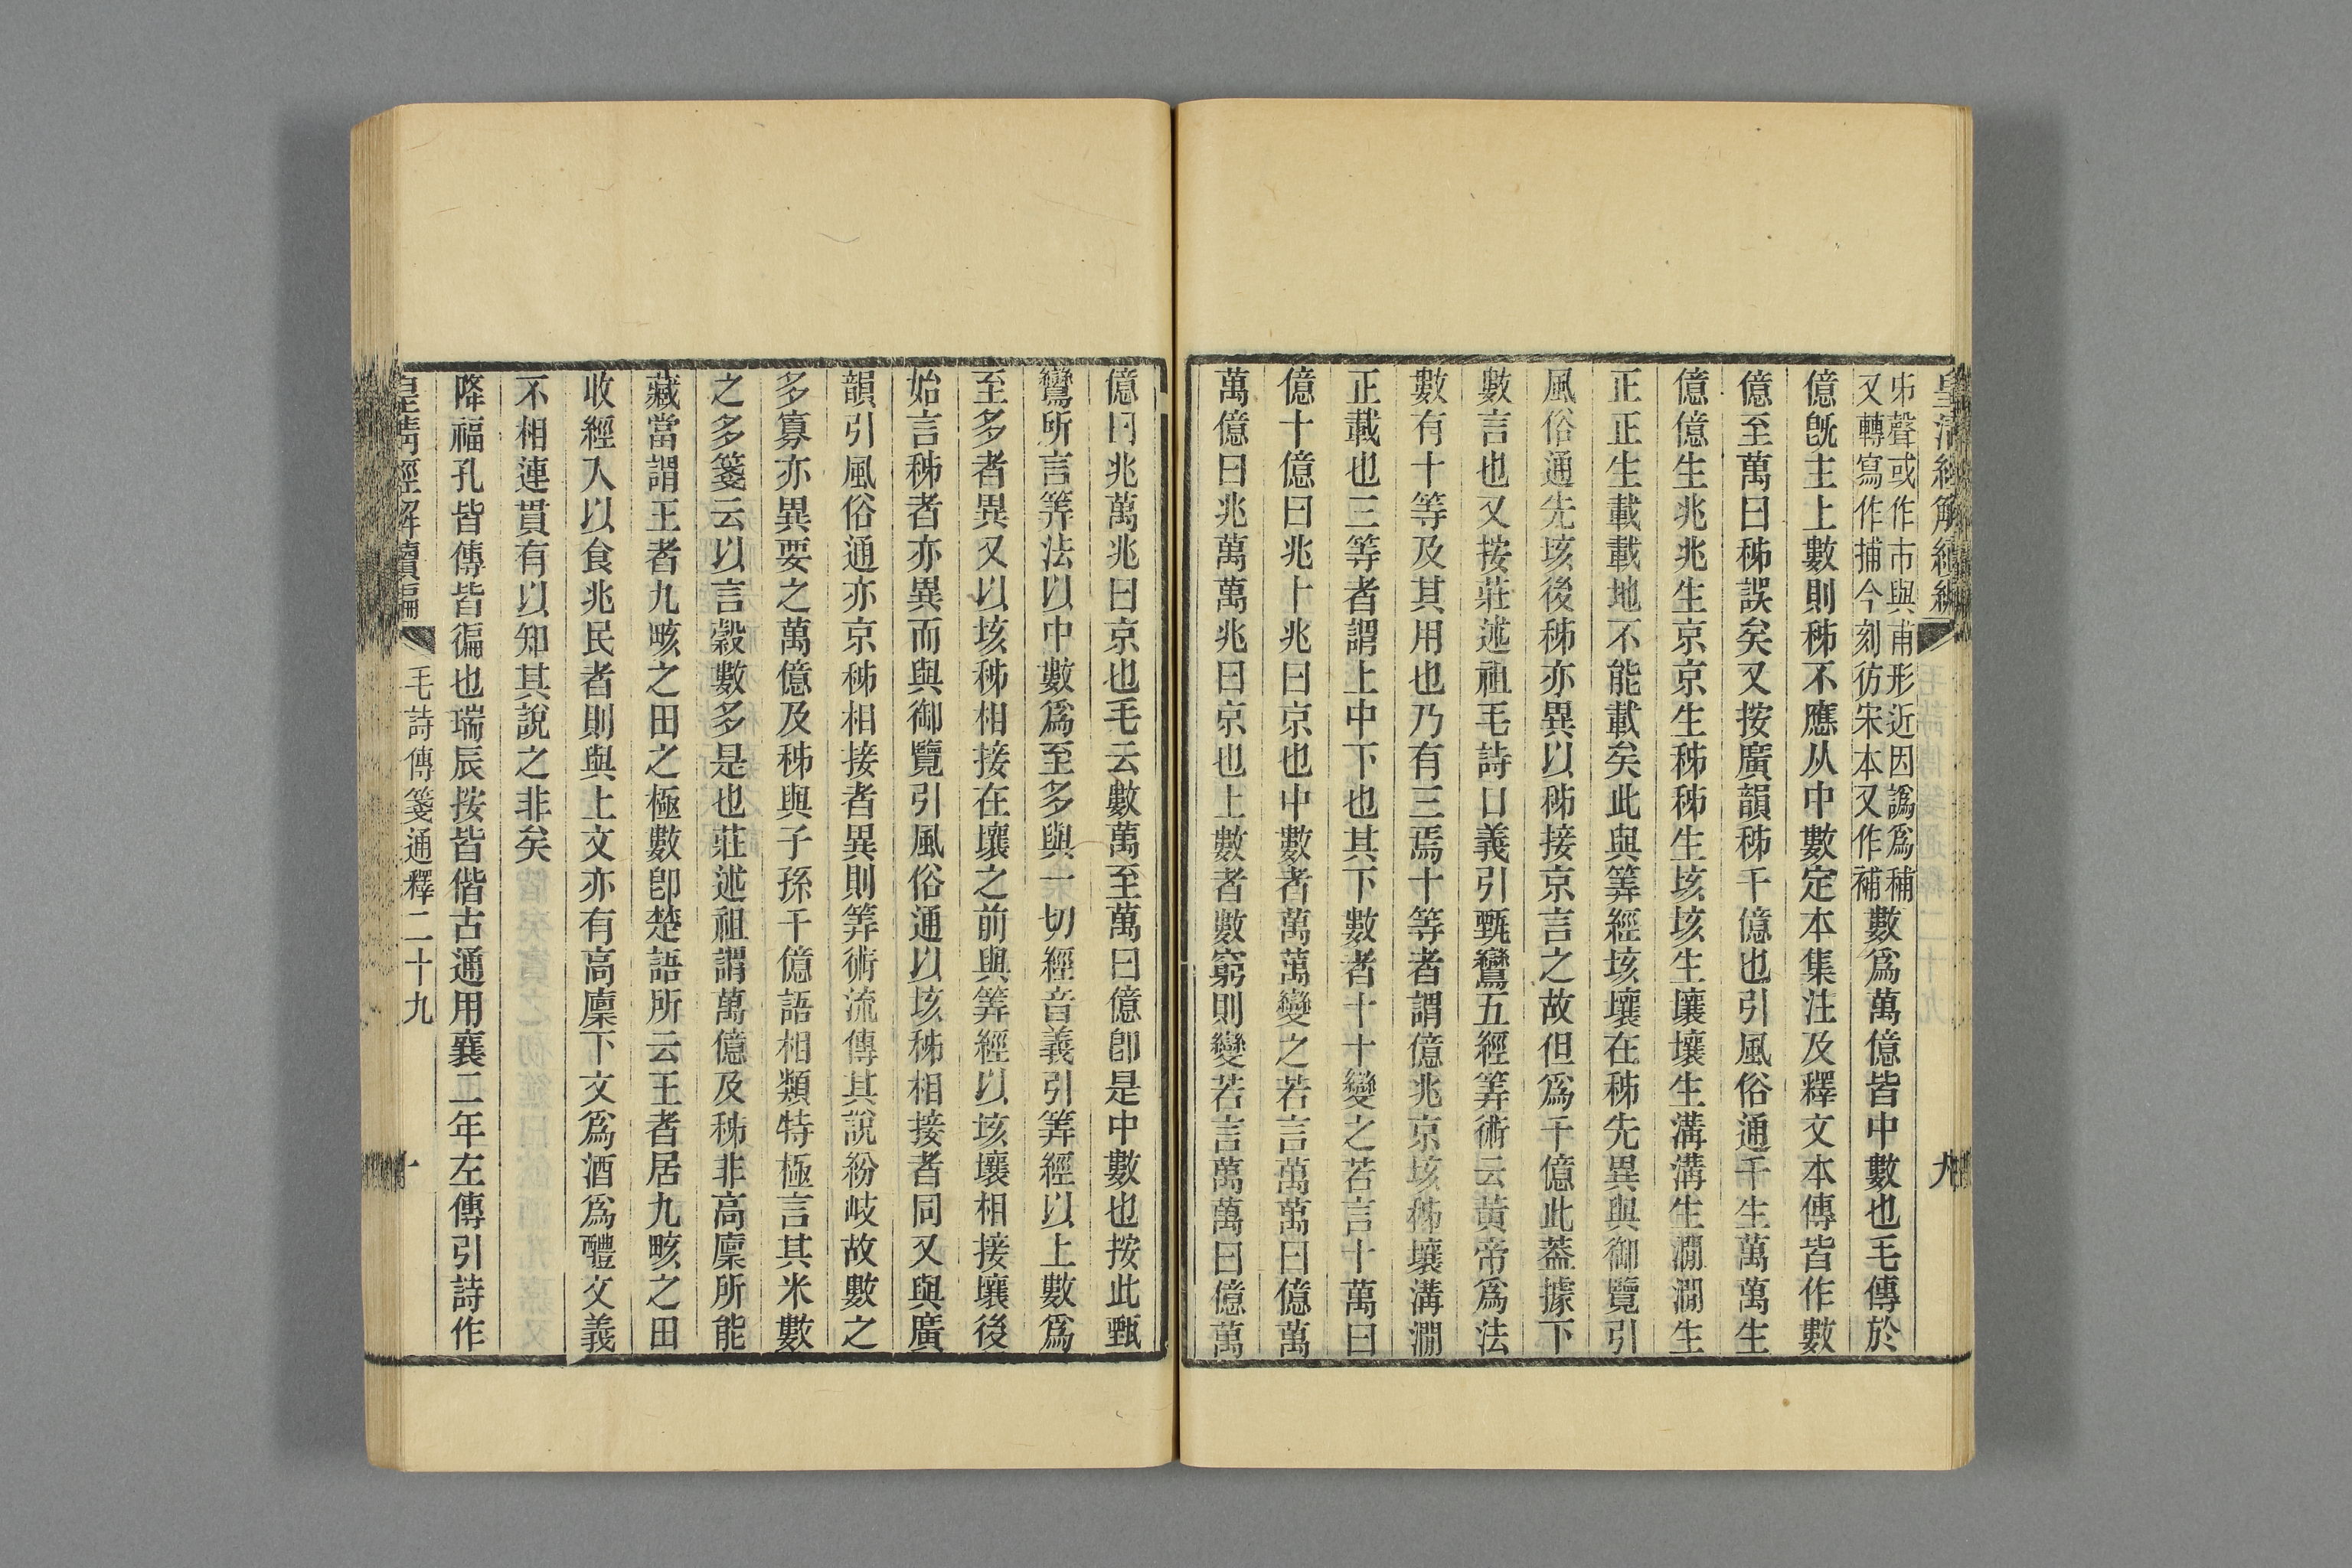 皇清經解續編
九
𠂔聲或作市與甫形近因譌爲補
又轉寫作捕今刻彷宋本又作補
數爲萬億皆中數也毛傳於
億旣主上數則秭不應从中數定本集注及釋文本傳皆作數
億至萬曰秭誤矣又按廣韻秭千億也引風俗通千生萬萬生
億億生兆兆生京京生秭秭生垓垓生壤壤生溝溝生澗澗生
正正生載載地不能載矣此與筭經垓壤在秭先異與御覽引
風俗通先垓後秭亦異以秭接京言之故但爲千億此葢據下
數言也又按莊述祖毛詩口義引甄鸞五經筭術云黃帝爲法
數有十等及其用也乃有三焉十等者謂億兆京垓秭壤溝澗
正載也三等者謂上中下也其下數者十十變之若言十萬曰
億十億曰兆十兆曰京也中數者萬萬變之若言萬萬曰億萬
萬億曰兆萬萬兆曰京也上數者數窮則變若言萬萬曰億萬
億曰兆萬兆曰京也毛云數萬至萬曰億卽是中數也按此甄
鸞所言筭法以中數爲至多與一切經音義引筭經以上數爲
至多者異又以垓秭相接在壤之前與筭經以垓壤相接壤後
始言秭者亦異而與御覽引風俗通以垓秭相接者同又與廣
韻引風俗通亦京秭相接者異則筭術流傳其說紛岐故數之
多寡亦異要之萬億及秭與子孫千億語相類特極言其米數
之多箋云以言穀數多是也莊述祖謂萬億及秭非高廩所能
藏當謂王者九畡之田之極數卽楚語所云王者居九畡之田
收經入以食兆民者則與上文亦有高廩下文爲酒爲醴文義
不相連貫有以知其說之非矣
降福孔皆傳皆徧也瑞辰按皆偕古通用襄二年左傳引詩作
皇清經解續編
毛詩傳箋通釋二十九
十